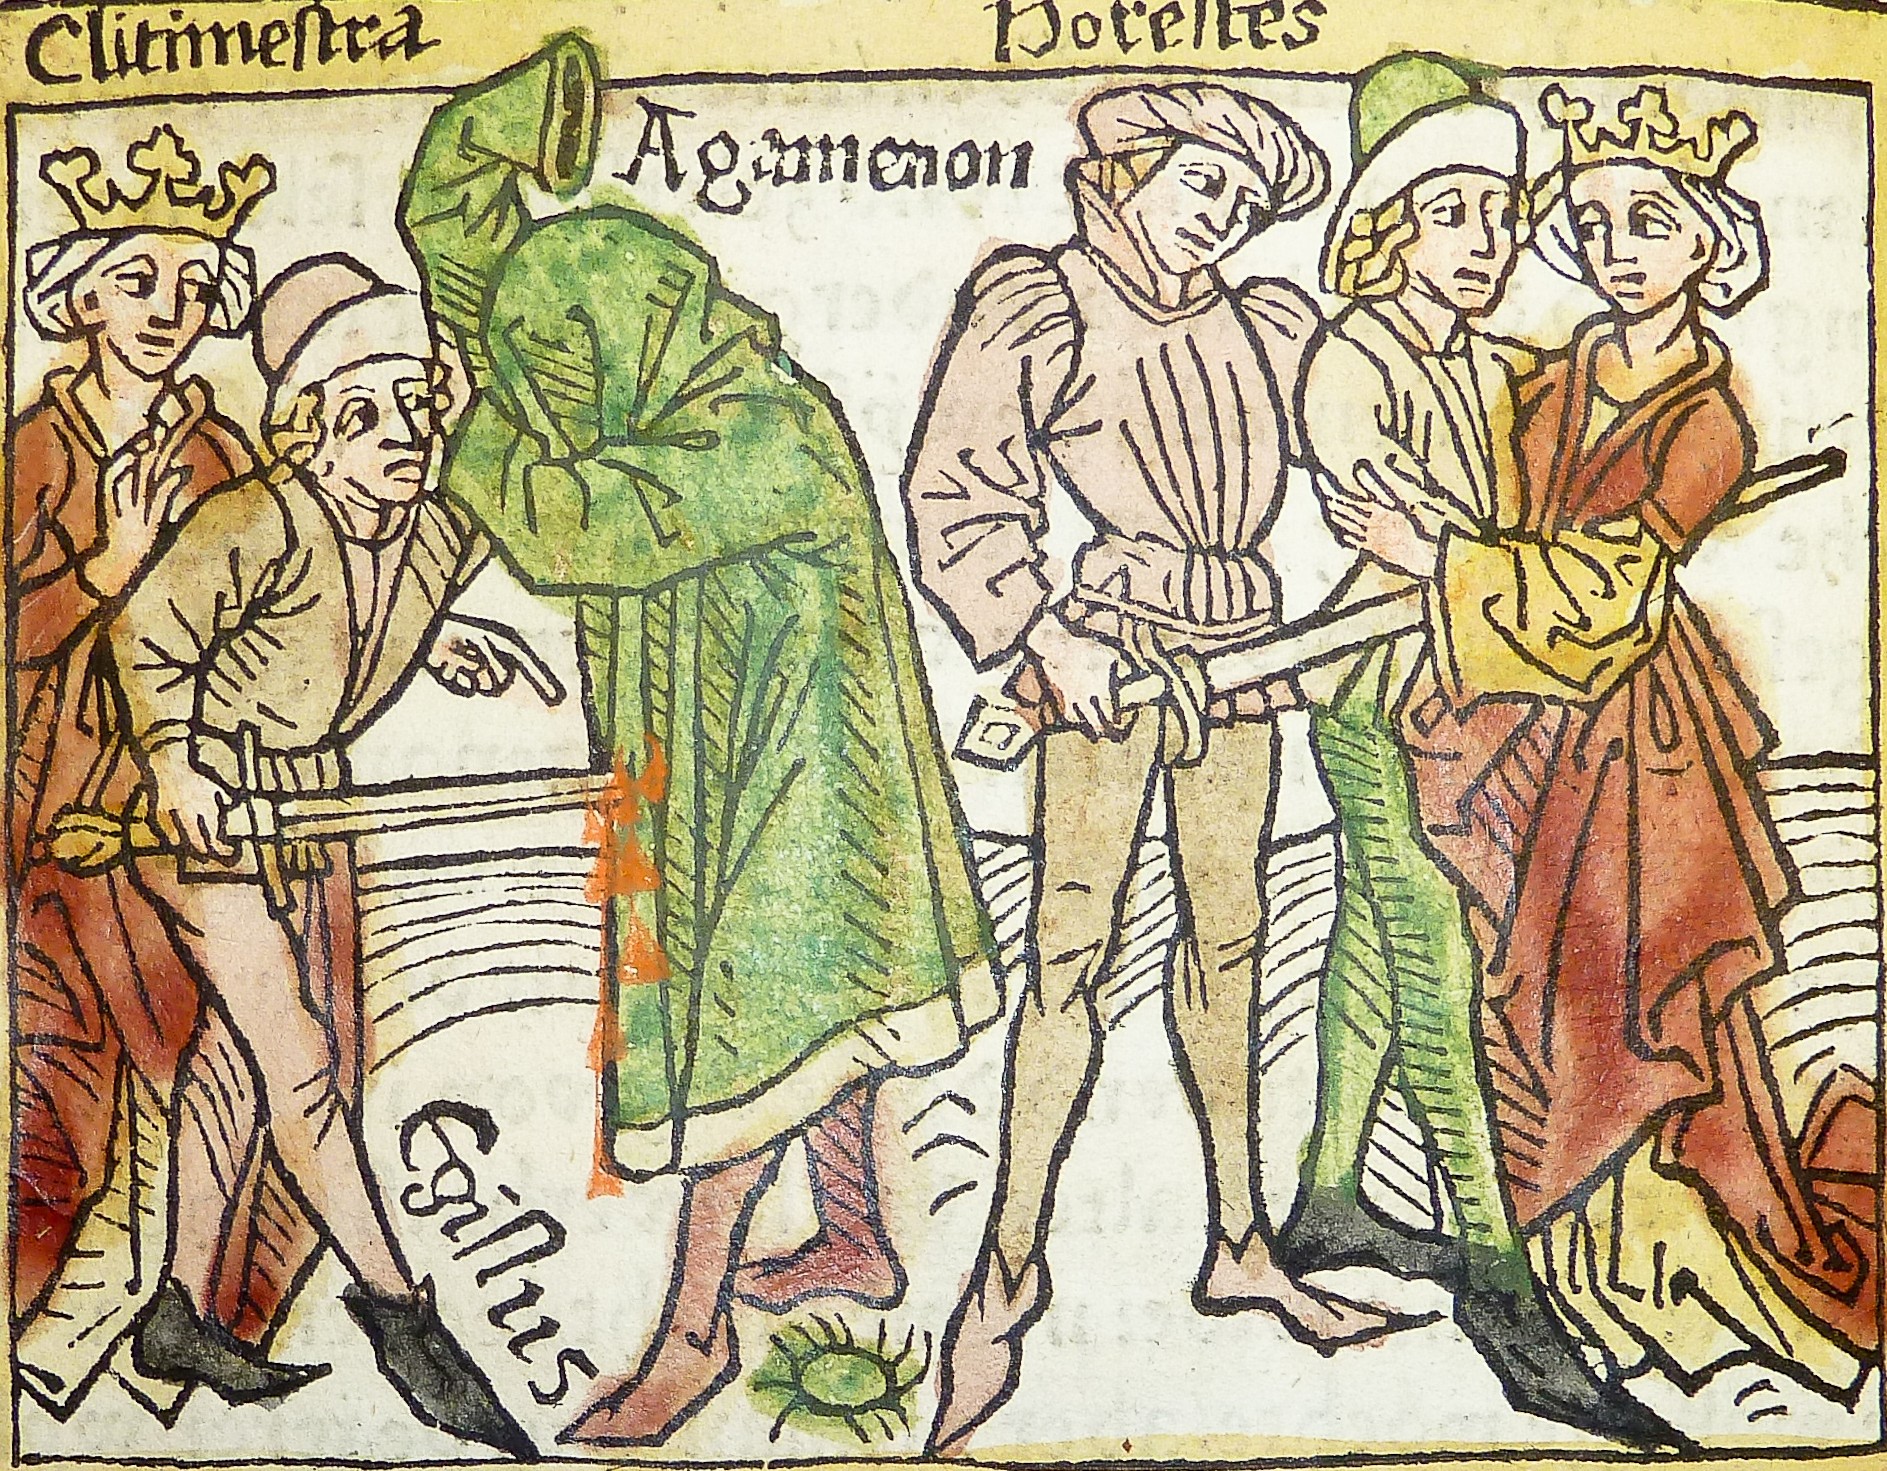 Clitimestra
Horestes
Agamenon
Egistus